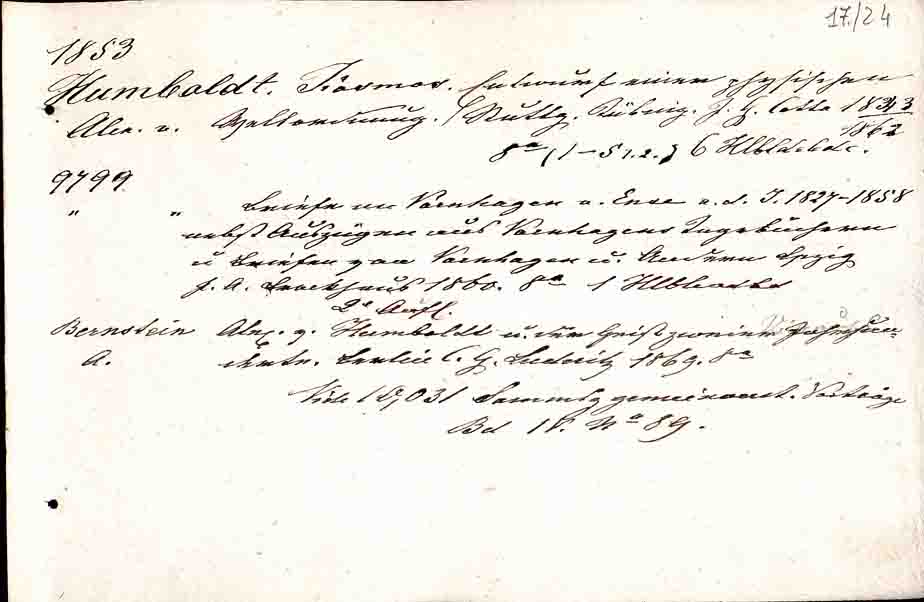 17./24
1853
Humboldt. Kosmos. Entwurf einer physischen
Alex. v. Weltordnung. Stuttg. Tübing. J. G. Cotta 18
1862
8° (1–5 1.2.) 6 Hlbldbde.
9799
" " Briefe an Varnhagen v. Ense a. d. J. 1827–1858
nebst Auszügen aus Varnhagens Tagebüchern
u Briefen von Varnhagen u. Andern Lpzig
F. A. Brockhaus 1860. 8° 1 Hlblwdbd
2° Aufl.
Bernstein Alex. v. Humboldt u. der Geist zweier Jahrhun-
A. derte. Berlin C. G. Luderitz 1869. 8°
Vide 10,031 Sammlg gemeinverst. Vorträge
Bd IV. N° 89.